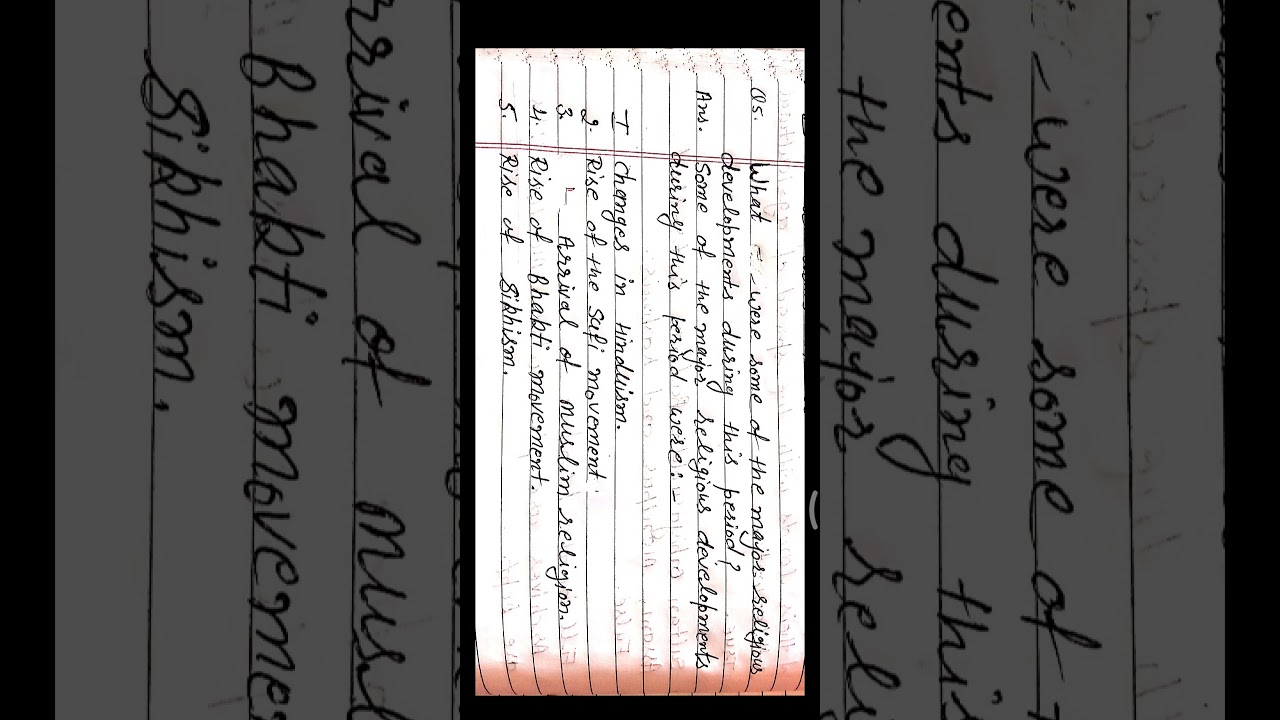 Q5. What - were some of the major religious
developments during this period?
Ans. Some of the major religious developments
during this period were:-
I Changes in Hinduism.
2. Rise of the Sufi movement.
3. Arrival of Muslim religion.
4. Rise of Bhakti movement.
5. Rise of Sikhism.